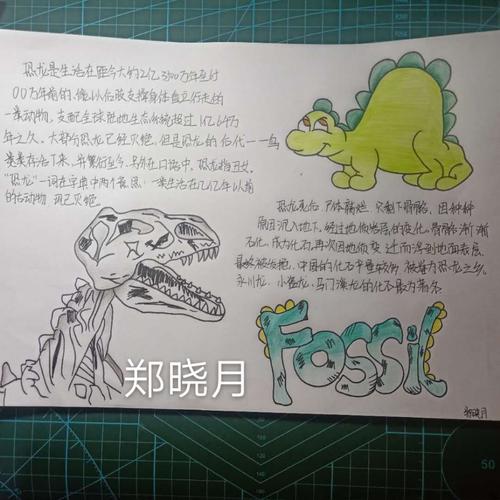 恐龙是生活在距今大约2亿3500万年至6
00万年前的,能以后肢支撑身体直立行走的
一类动物,支配全球陆地生态系统超过1亿6千万
年之久。大部分恐龙已经灭绝,但是恐龙的后代——鸟
类存活下来,并繁衍至今
"恐龙"一词在字典中两个意思:一类生活在几亿年以前
的古动物 现已灭绝
恐龙死后,尸体腐烂 只剩下骨骼,因种种
原因沉入地下,经过地质岩层的变化,骨骼渐渐
石化,成为化石,再次因地质变迁而浮到地面表层,
最终被发掘,中国的化石丰量较多 被誉为恐龙之乡,
永川龙、小盗龙、马门溪龙的化石最为著名
Fossil
郑晓月
郑晓月
50